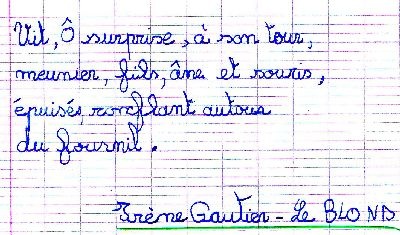 Vit, Ô surprise, à son tour,
meunier, fils, âne et souris,
épuisés, ronflant autour
du fournil.
Irène Gautier - Le BLOND